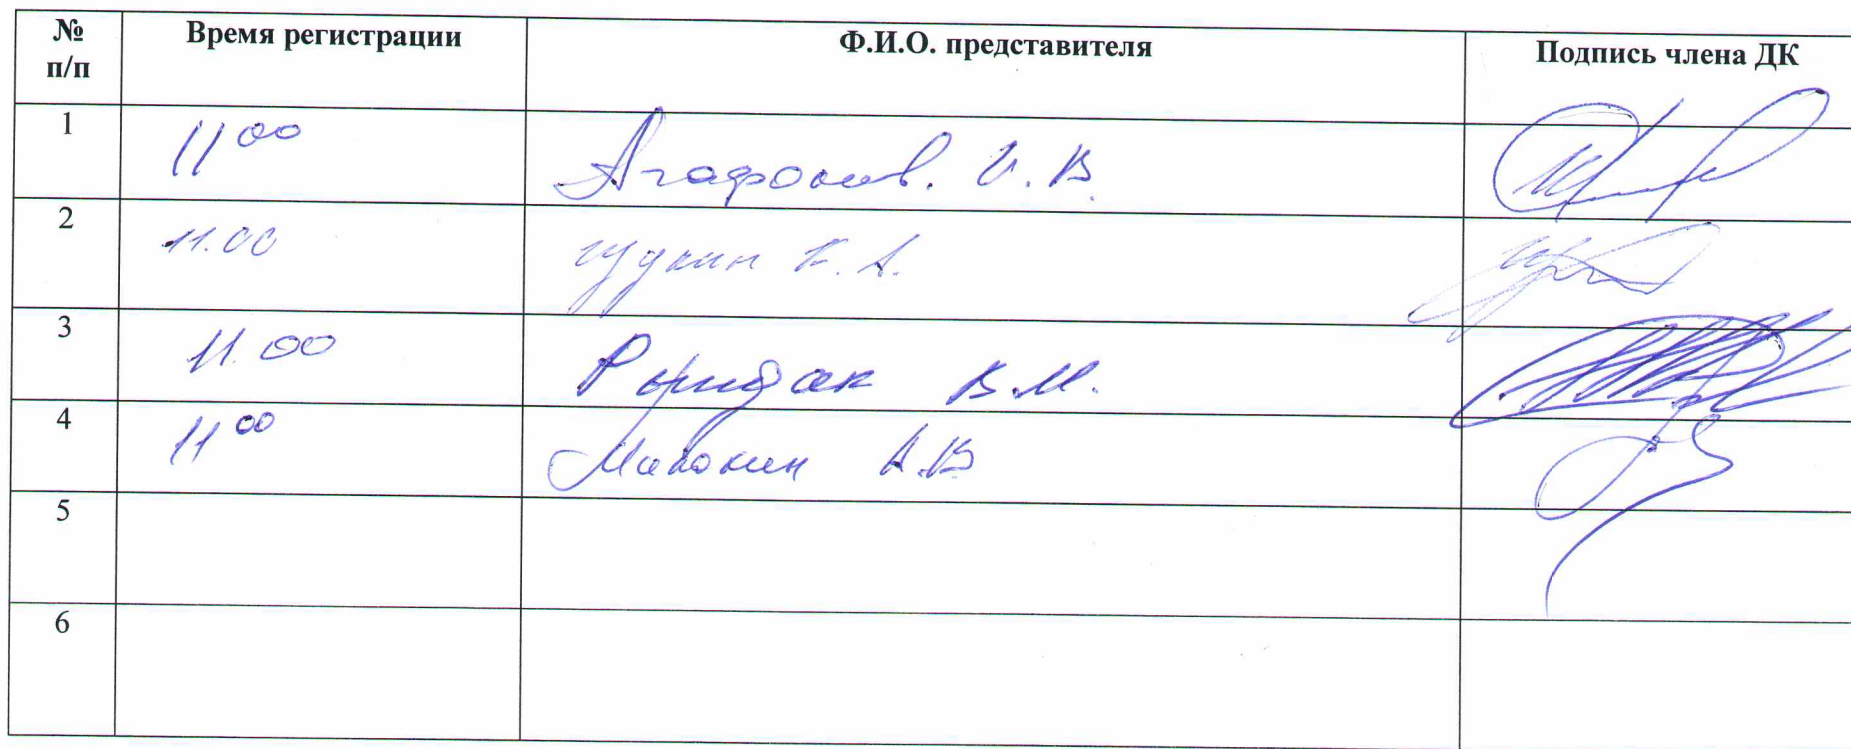 № п/п Время регистрации Ф.И.О. представителя Подпись члена ДК
1 11 00 Агафонов. И. В.
2 11.00 Щукин К. А.
3 11.00 В.М.
4 11 00 А.В
5
6